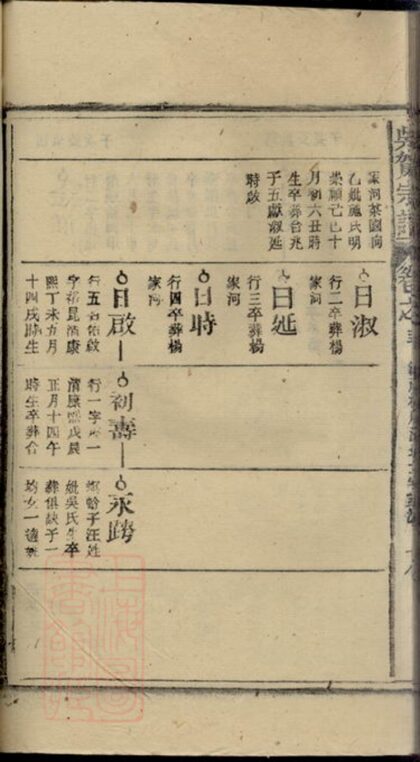 宗譜
卷之
家河菜園向
乙妣施氏明
崇禎己巳十
月初六丑時
生卒葬合兆
子五獻淑延
時啟
日淑
行二卒葬楊
家河
日延
行三卒葬楊
家河
日時
行四卒葬楊
家河
日啟
行五 啟
字 昆清康
熙丁未九月
十四戌時生
初壽
行一字 一
清康熙戊辰
正月十四午
時生卒葬合
永跨
蛉子汪姓
妣吳氏生卒
葬俱缺子一
均女一適